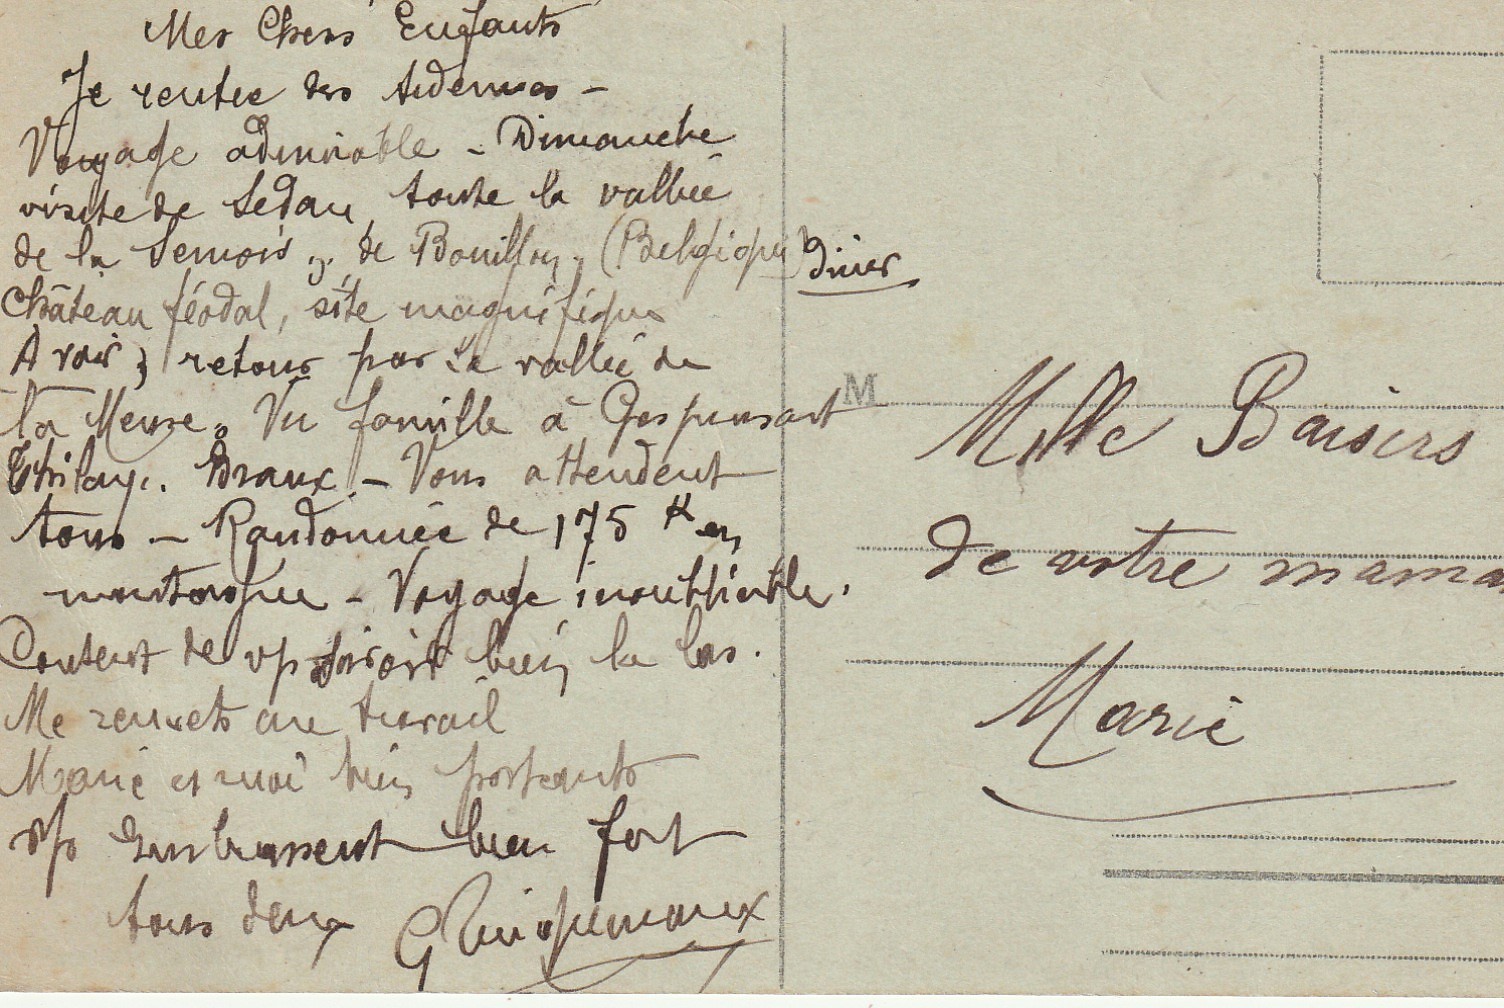 Mes Chers Enfants
Je rentre des Ardennes -
Voyage admirable - Dimanche
visite de Sedan, toute la vallée
de la Semois, de Bouillon, (Belgique) diner
Château féodal, site magnifique
A voir, retour par la vallée de
la Meuse. Vu famille à Gespunsart
Thilay. Braux. - Vous attendent
tous - Randonnée de 175 K en
- Voyage inoubliable.
Content de bien là bas.
Me remets au travail
Marie et moi bien portants
embrassent bien fort
tous deux
M
Mille Baisers
de votre mama
Marie